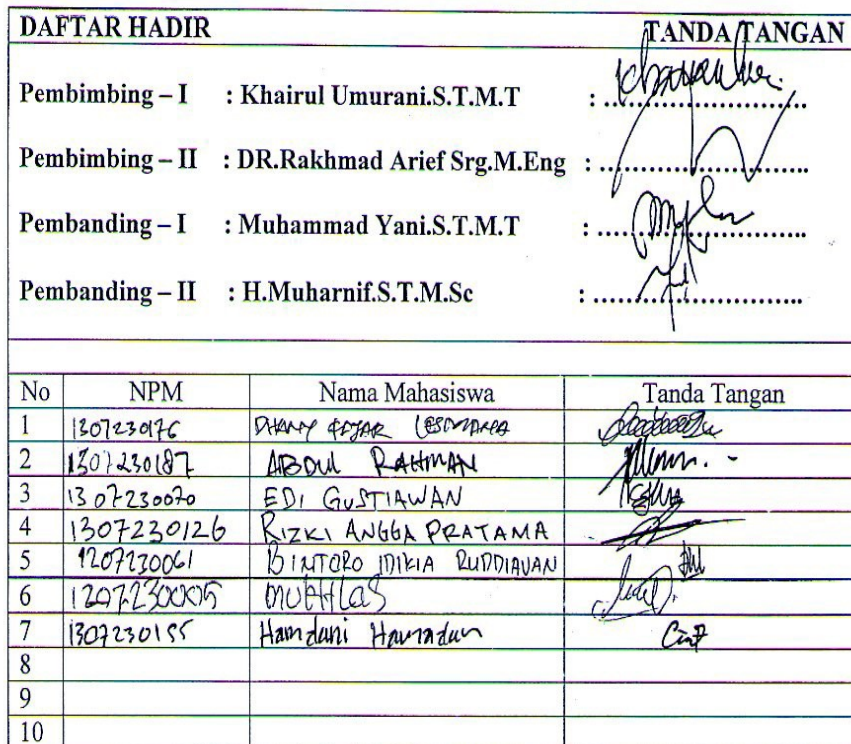 DAFTAR HADIR TANDA TANGAN
Pembimbing – I : Khairul Umurani.S.T.M.T : ..............................
Pembimbing – II : DR.Rakhmad Arief Srg.M.Eng : ..............................
Pembanding – I : Muhammad Yani.S.T.M.T : ..............................
Pembanding – II : H.Muharnif.S.T.M.Sc : ..............................
No NPM Nama Mahasiswa Tanda Tangan
1 1307230176 DHANY FAJAR LESMANA
2 1307230187 ABDUL RAHMAN
3 1307230070 EDI GUSTIAWAN
4 1307230126 RIZKI ANGGA PRATAMA
5 1207230061 BINTORO
6 MUKHLAS
7 1307230155 Hamdani
8
9
10